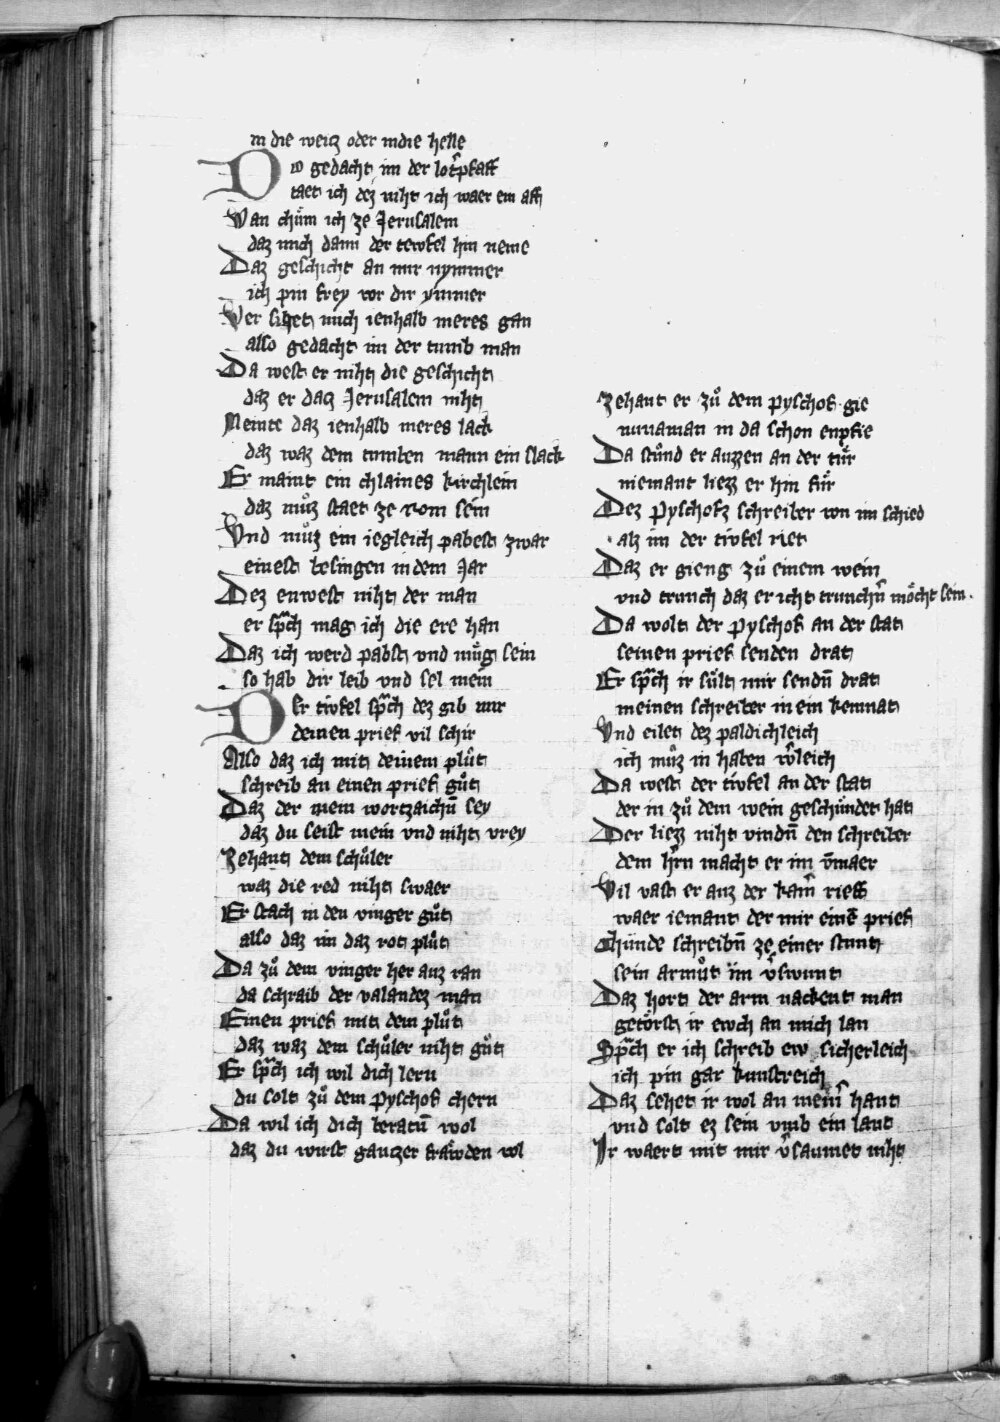 in die weitz oder in die helle
Do gedacht im der lotˀpfaff
taet ich dez niht ich waer ein aff
Wan chüm ich ze Jerusalem
daz mich dann der tewfel hin neme
Daz geschicht an mir nymmer
ich pin frey vor dir ymmer
Wer sihet mich ienhalb meres gan
also gedacht im der tumb man
Da west er niht die geschicht
daz er datz Jerusalem niht
Meinte daz ienhalb meres lack
daz waz dem tumben mann ein slack
Er maint ein chlaines kirchlein
daz muͦz staet ze rom sein
Vnd muͦz ein iegleich pabest zwar
einest besingen in dem Jar
Dez enwest niht der man
er spᵃch mag ich die ere han
Daz ich werd pabst vnd müg sein
so hab dir leib vnd sel mein
Der tivfel spᵃch dez gib mir
deinen prief vil schir
Also daz ich mit deinem pluͦt
schreib an einen prief guͦt
Daz der mein wortzaichn̄ sey
daz du seist mein vnd niht vrey
Zehant dem schuͦler
waz die red niht swaer
Er stach in den vinger guͦt
also daz im daz rot pluͦt
Da zuͦ dem vinger her auz ran
da schraib der valandez man
Einen prief mit dem pluͦt
daz waz dem schuͦler niht guͦt
Er spᵃch ich wil dich lern
du solt zuͦ dem pyschof chern
Da wil ich dich beratn̄ wol
daz du wirst gantzer fräwden vol
Zehant er zuͦ dem pyschof gie
nimaman in da schon enpfie
Da stuͦnd er auzzen an der tür
niemant liezz er hin für
Dez pyschofz schreiber von im schied
alz im der tivfel riet
Daz er gieng zuͦ einem wein
vnd trunch daz er icht trunchˀn möcht sein.
Da wolt der pyschof an der stat
seinen prief senden drat
Er spᵃch ir sült mir sendn̄ drat
meinen schreiber in ein kemnat
Vnd eilet dez paldichleich
ich muͦz in haben wˀleich
Da west der tivfel an der stat
der in zuͦ dem wein geschündet hat
Der liezz niht vindn̄ den schreiber
dem hˀrn macht er in v̄maer
Vil vast er auz der kamˀ rieff
waer iemant der mir einē prief
Chünde schreibn̄ ze einer stunt
sein armuͦt im vˀswunt
Daz hort der arm nackent man
getörst ir ewch an mich lan
Spᵃch er ich schreib ew sicherleich
ich pin gar kunstreich
Daz sehet ir wol an meinˀ hant
vnd solt ez sein vmb ein lant
Ir waert mit mir vˀsaumet niht